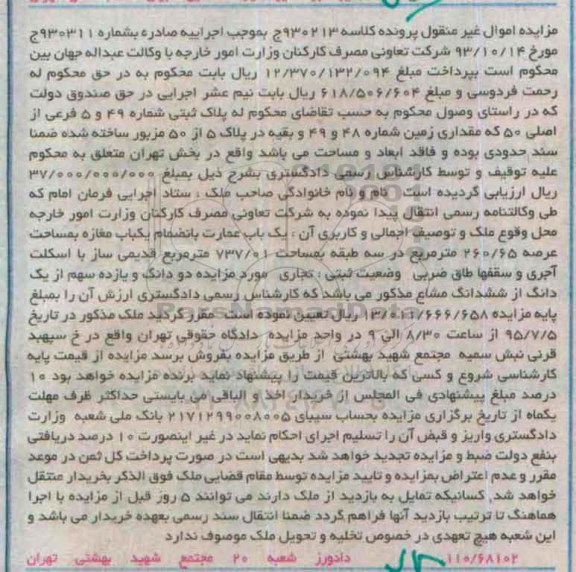 مزایده اموال غیر منقول پرونده کلاسه ۹۳۰۲۱۳ج بموجب اجراییه صادره بشماره ۹۳۰۳۱۱ج
مورخ ۹۳/۱۰/۱۴ شرکت تعاونی مصرف کارکنان وزارت امور خارجه با وکالت عبداله جهان بین
محکوم است بپرداخت مبلغ ۱۲/۳۷۰/۱۳۲/۰۹۴ ریال بابت محکوم به در حق محکوم له
رحمت فردوسی و مبلغ ۶۱۸/۵۰۶/۶۰۴ ریال بابت نیم عشر اجرایی در حق صندوق دولت
که در راستای وصول محکوم به حسب تقاضای محکوم له پلاک ثبتی شماره ۴۹ و ۵ فرعی از
اصلی ۵۰ که مقداری زمین شماره ۴۸ و ۴۹ و بقیه در پلاک ۵ از ۵۰ مزبور ساخته شده ضمنا
سند حدودی بوده و فاقد ابعاد و مساحت می باشد واقع در بخش تهران متعلق به محکوم
علیه توقیف و توسط کارشناس رسمی دادگستری بشرح ذیل بمبلغ ۳۷/۰۰۰/۰۰۰/۰۰۰
ریال ارزیابی گردیده است نام و نام خانوادگی صاحب ملک : ستاد اجرایی فرمان امام که
طی وکالتنامه رسمی انتقال پیدا نموده به شرکت تعاونی مصرف کارکنان وزارت امور خارجه
محل وقوع ملک و توصیف اجمالی و کاربری آن : یک باب عمارت بانضمام یکباب مغازه بمساحت
عرصه ۲۶۰/۶۵ مترمربع در سه طبقه بمساحت ۷۳۷/۰۱ مترمربع قدیمی ساز با اسکلت
آجری و سقفها طاق ضربی وضعیت ثبتی : تجاری مورد مزایده دو دانگ و یازده سهم از یک
دانگ از ششدانگ مشاع مذکور می باشد که کارشناس رسمی دادگستری ارزش آن را بمبلغ
پایه مزایده ۱۳/۰۱۱/۶۶۶/۶۵۸ ریال تعیین نموده است مقرر گردید ملک مذکور در تاریخ
۹۵/۷/۵ از ساعت ۸/۳۰ الی ۹ در واحد مزایده دادگاه حقوقی تهران واقع در خ سپهبد
قرنی نبش سمیه مجتمع شهید بهشتی از طریق مزایده بفروش برسد مزایده از قیمت پایه
کارشناسی شروع و کسی که بالاترین قیمت را پیشنهاد نماید برنده مزایده خواهد بود ۱۰
درصد مبلغ پیشنهادی فی المجلس از خریدار اخذ و الباقی می بایستی حداکثر ظرف مهلت
یکماه از تاریخ برگزاری مزایده بحساب سیبای ۲۱۷۱۲۹۹۰۰۸۰۰۵ بانک ملی شعبه وزارت
دادگستری واریز و قبض آن را تسلیم اجرای احکام نماید در غیر اینصورت ۱۰ درصد دریافتی
بنفع دولت ضبط و مزایده تجدید خواهد شد بدیهی است در صورت پرداخت کل ثمن در موعد
مقرر و عدم اعتراض بمزایده و تایید مزایده توسط مقام قضایی ملک فوق الذکر بخریدار منتقل
خواهد شد. کسانیکه تمایل به بازدید از ملک دارند می توانند ۵ روز قبل از مزایده با اجرا
هماهنگ تا ترتیب بازدید آنها فراهم گردد ضمنا انتقال سند رسمی بعهده خریدار می باشد و
این شعبه هیچ تعهدی در خصوص تخلیه و تحویل ملک موصوف ندارد
۱۱۰/۶۸۱۰۲ دادورز شعبه ۲۰ مجتمع شهید بهشتی تهران